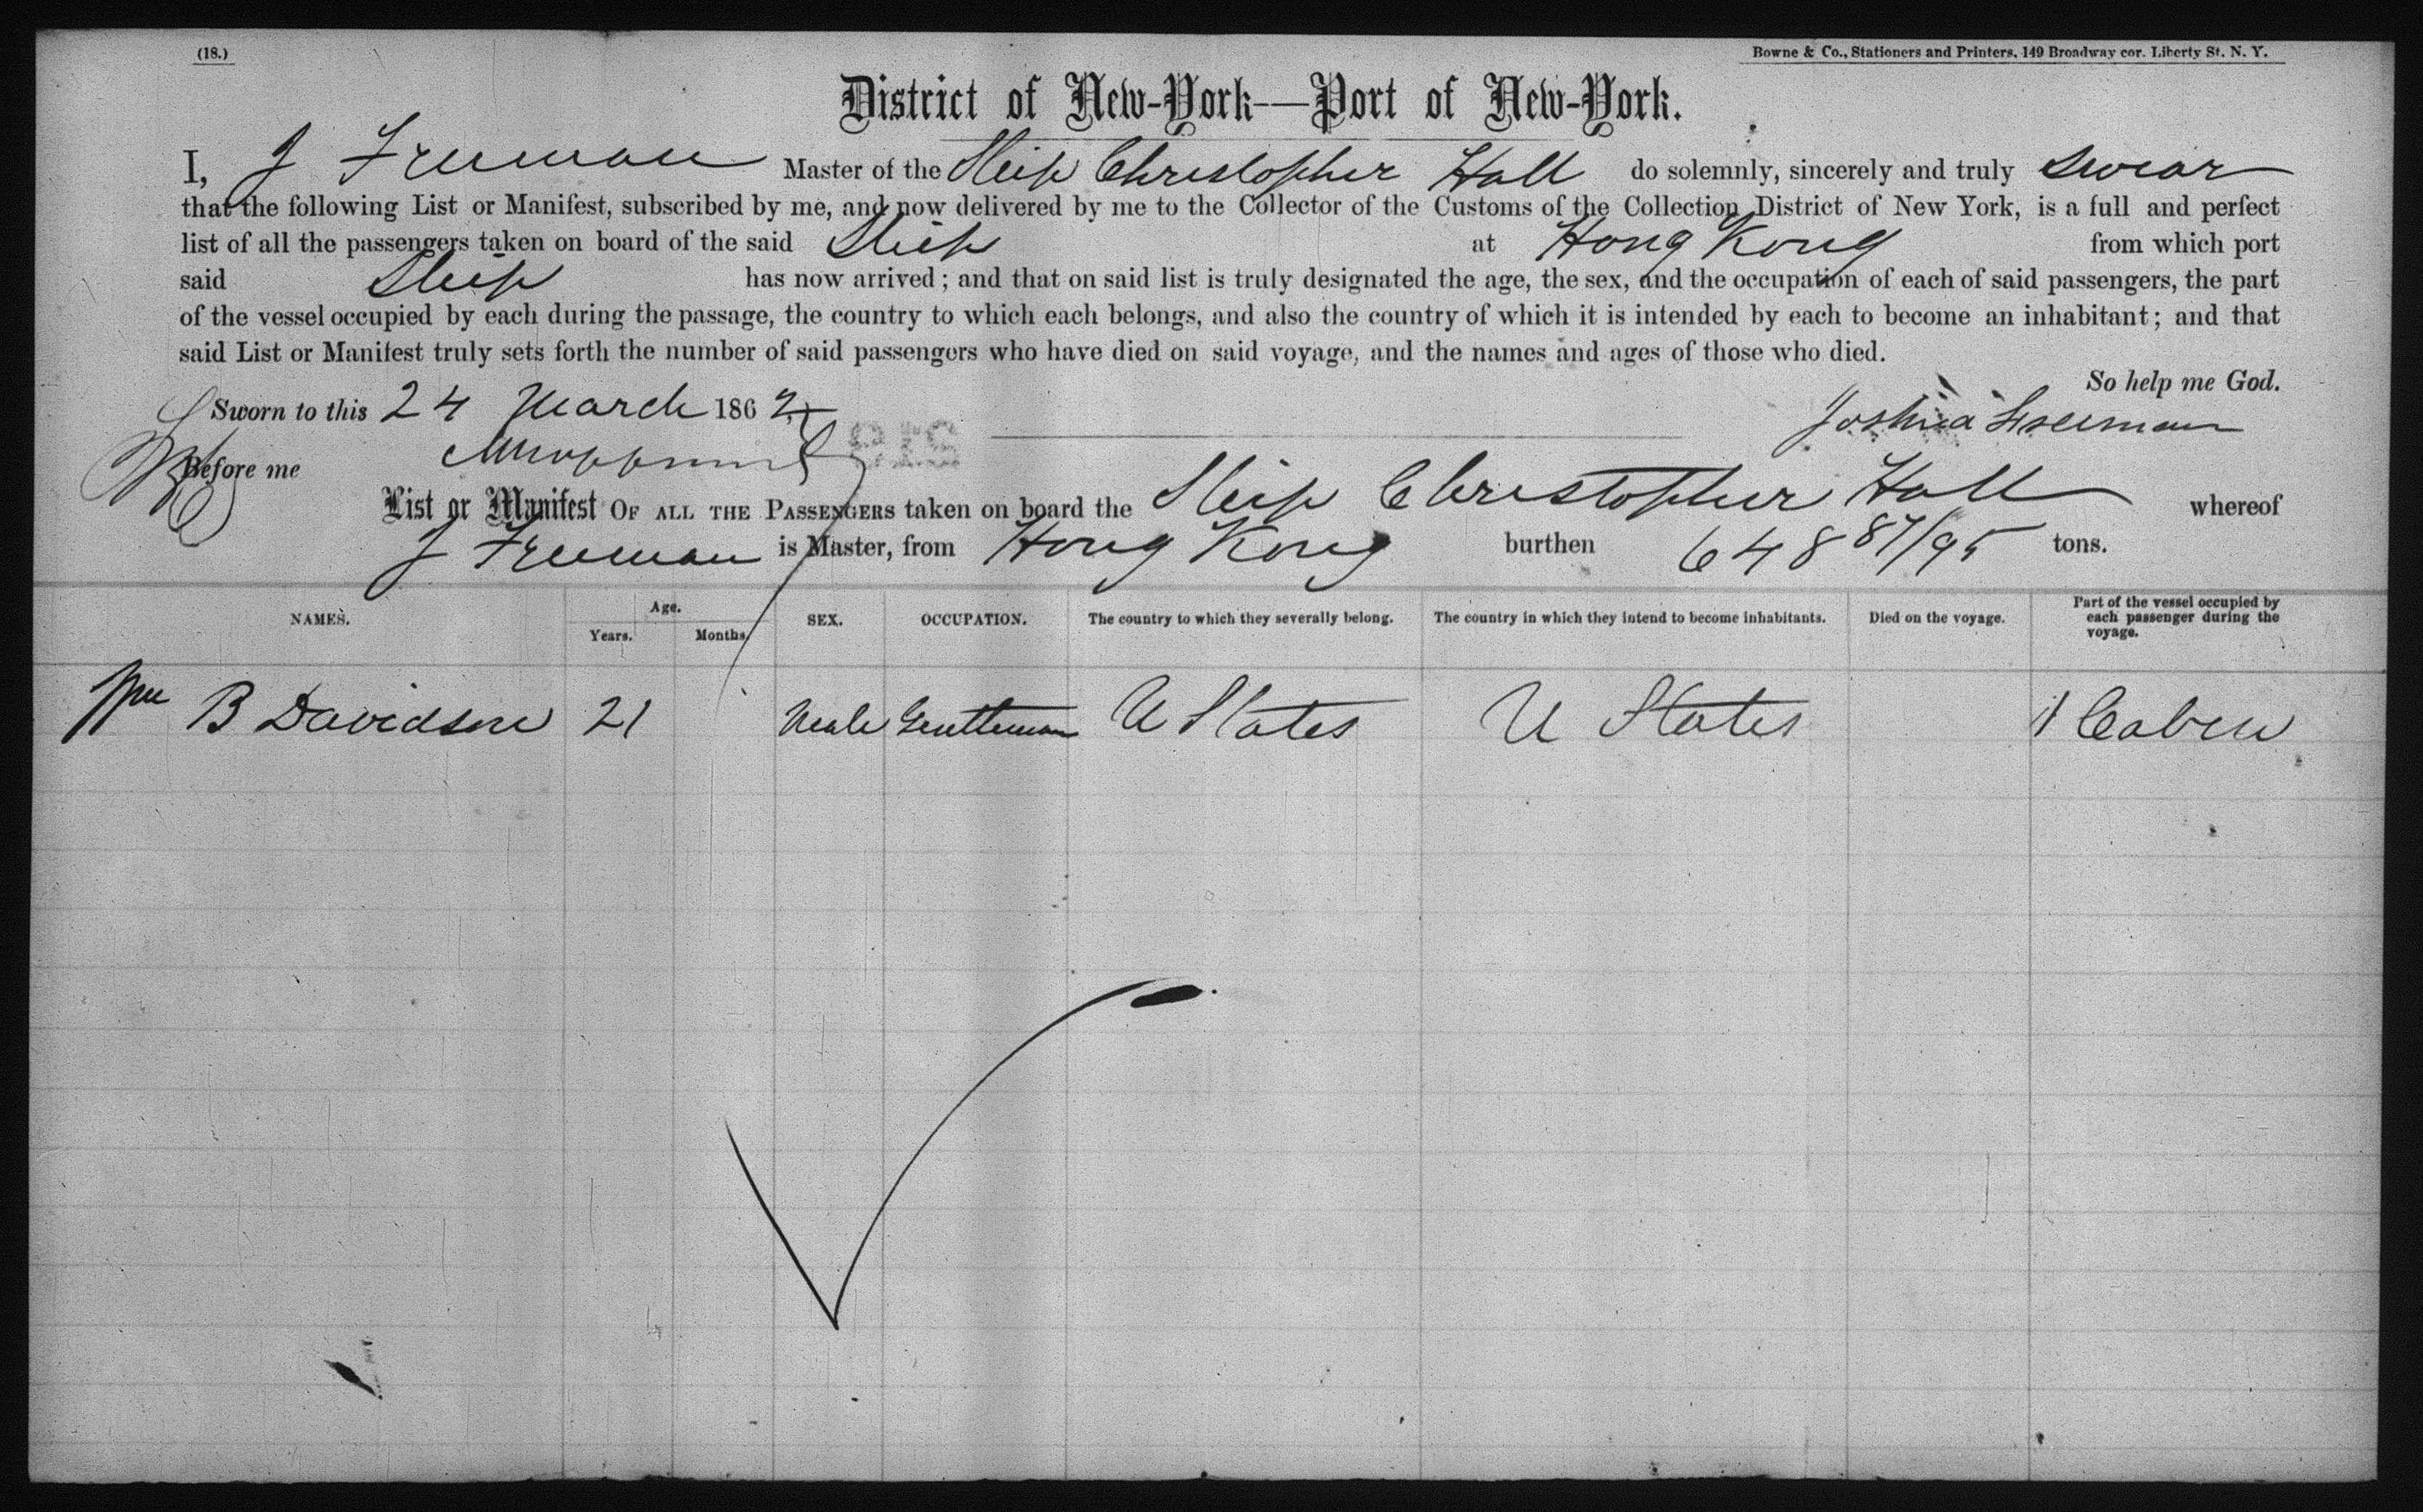 (18.)
Bowne & Co., Stationers and Printers, 149 Broadway cor. Liberty St. N. Y.
District of New-York—Port of New-York.
I, J Freeman Master of the Ship Christopher Hall do solemnly, sincerely and truly swear
that the following List or Manifest, subscribed by me, and now delivered by me to the Collector of the Customs of the Collection District of New York, is a full and perfect
list of all the passengers taken on board of the said Ship at Hong Kong from which port
said Ship has now arrived; and that on said list is truly designated the age, the sex, and the occupation of each of said passengers, the part
of the vessel occupied by each during the passage, the country to which each belongs, and also the country of which it is intended by each to become an inhabitant; and that
said List or Manifest truly sets forth the number of said passengers who have died on said voyage, and the names and ages of those who died.
So help me God.
Sworn to this 24 March 1862
Joshua Freeman
Before me
List or Manifest OF ALL THE PASSENGERS taken on board the Ship Christopher Hall whereof
J Freeman is Master, from Hong Kong burthen 648 87/95 tons.
NAMES. Age. Years. Months. SEX. OCCUPATION. The country to which they severally belong. The country in which they intend to become inhabitants. Died on the voyage. Part of the vessel occupied by each passenger during the voyage.
Wm B Davidson 21 Male Gentleman U States U States Cabin